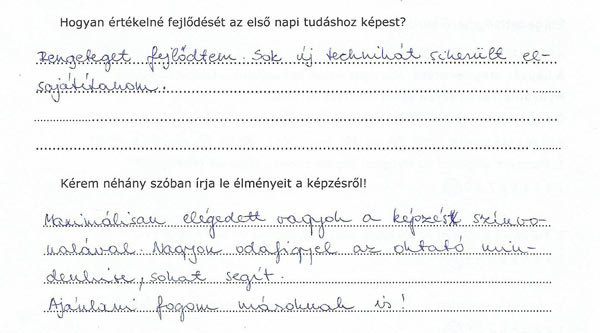 Hogyan értékelné fejlődését az első napi tudáshoz képest?
Rengeteget fejlődtem. Sok új technikát sikerült el-
sajátítanom.
Kérem néhány szóban írja le élményeit a képzésről!
Maximálisan elégedett vagyok a képzés színvo-
nalával. Nagyon odafigyel az oktató min-
denkire, sokat segít.
Ajánlani fogom másoknak is!